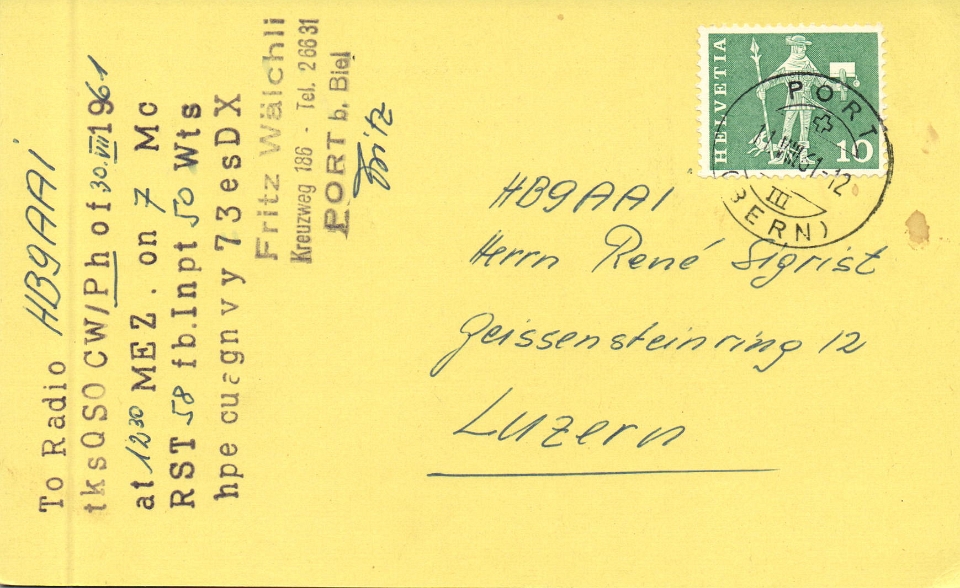 To Radio HB9AAI
tks QSO CW/Ph of 30.VIII 1961
at 1230 MEZ. on 7 Mc
RST 58 fb. Inpt 50 Wts
hpe cuagn vy 73 es DX
Fritz Wälchli
Kreuzweg 186 - Tel. 2 66 31
PORT b. Biel
Fritz
HELVETIA
10
PORT
61-12
III
(BERN)
HB9AAI
Herrn René Sigrist
Geissensteinring 12
Luzern